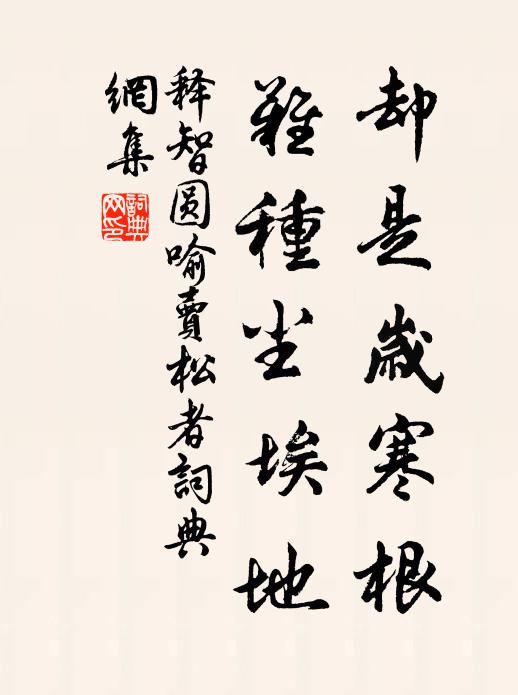 却是歲寒根
難種尘埃地
释智圆喻賣松者詞典
網集
詞典
网印